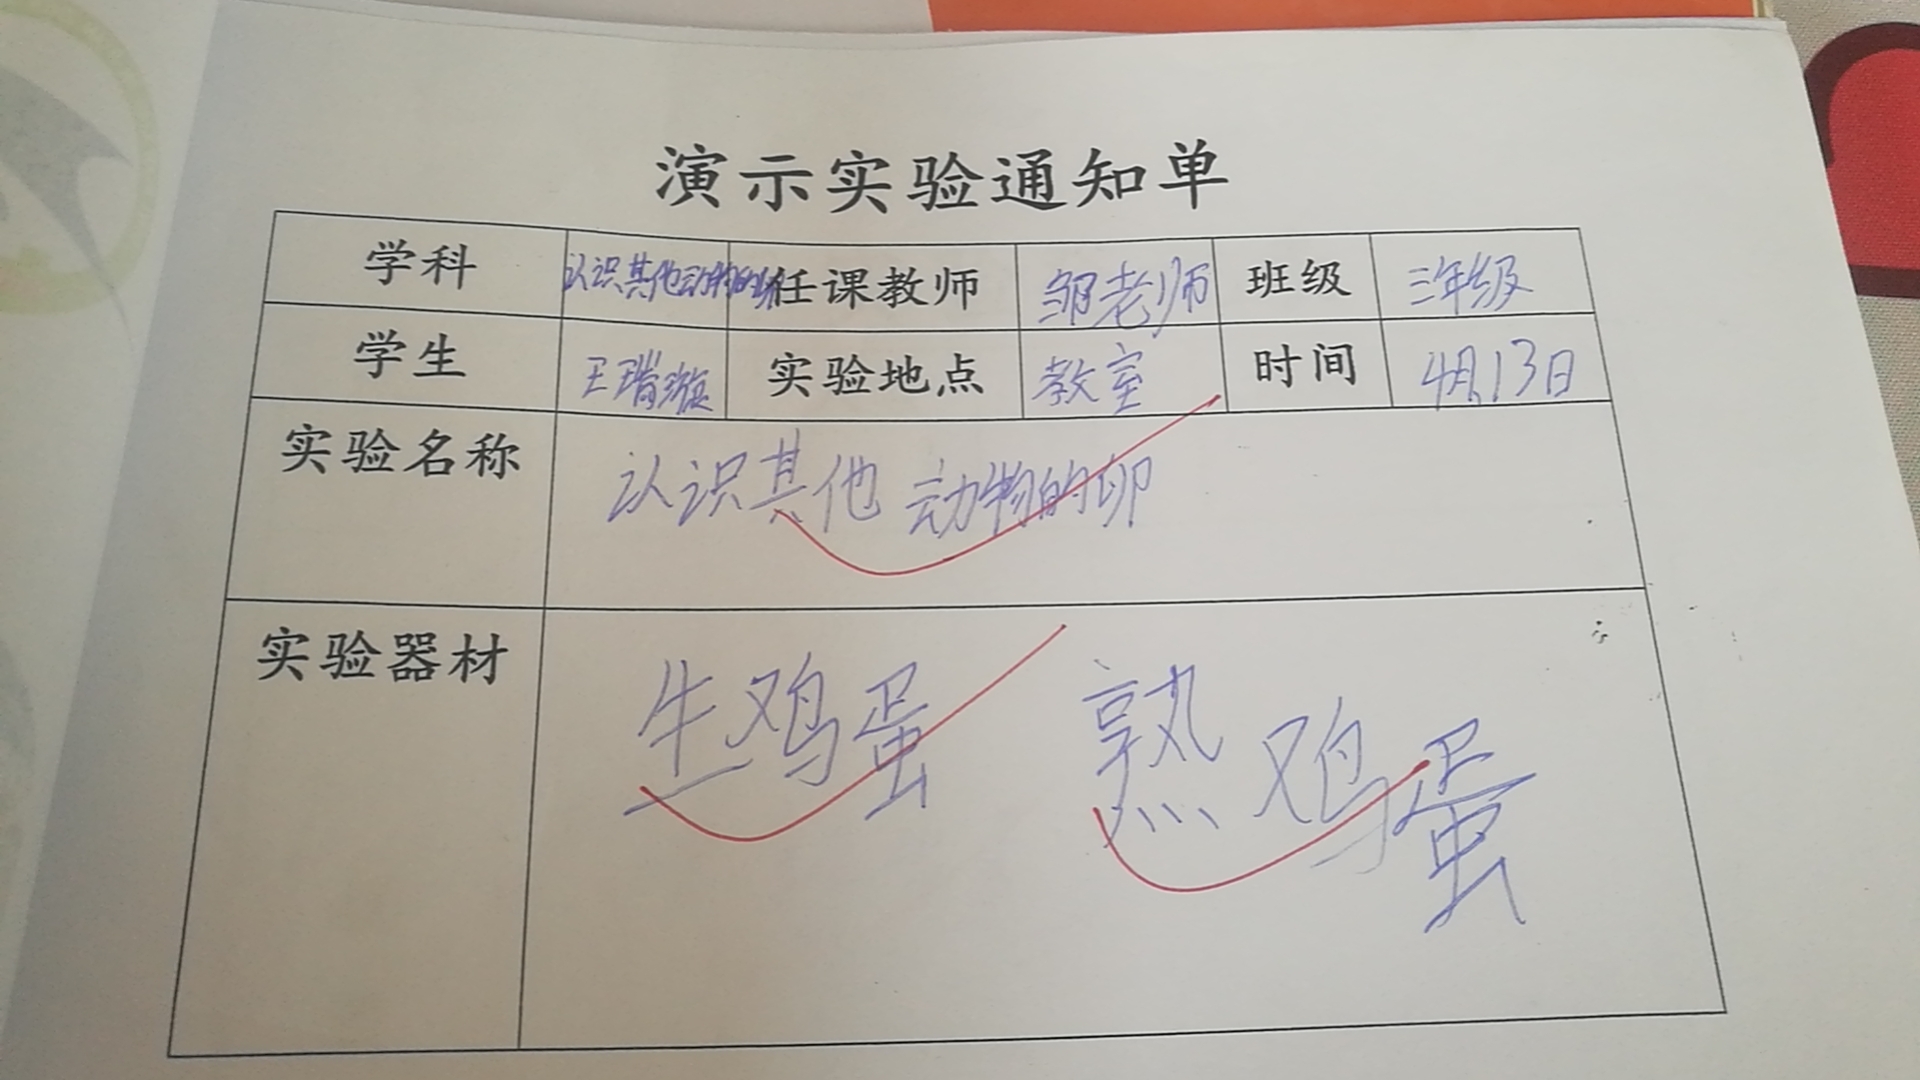 演示实验通知单
学科 认识其他动物的卵 任课教师 邹老师 班级 三年级
学生 王瑞璇 实验地点 教室 时间 4月13日
实验名称 认识其他动物的卵
实验器材 生鸡蛋 熟鸡蛋